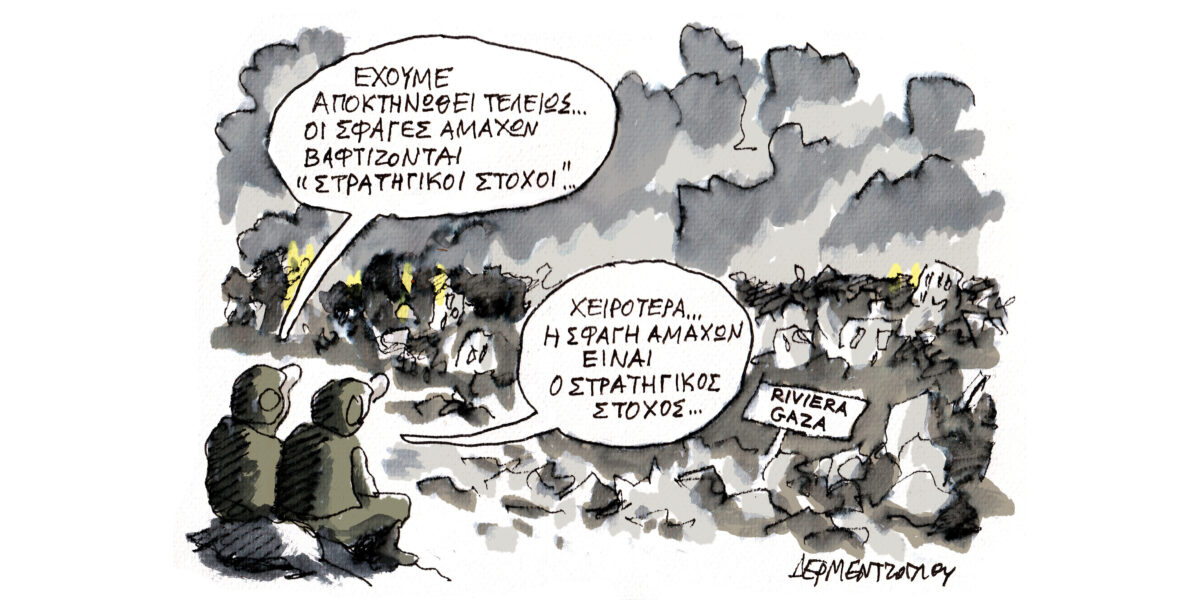 ΕΧΟΥΜΕ
ΑΠΟΚΤΗΝΩΘΕΙ ΤΕΛΕΙΩΣ...
ΟΙ ΣΦΑΓΕΣ ΑΜΑΧΩΝ
ΒΑΦΤΙΖΟΝΤΑΙ
"ΣΤΡΑΤΗΓΙΚΟΙ ΣΤΟΧΟΙ"...
ΧΕΙΡΟΤΕΡΑ...
Η ΣΦΑΓΗ ΑΜΑΧΩΝ
ΕΙΝΑΙ
Ο ΣΤΡΑΤΗΓΙΚΟΣ
ΣΤΟΧΟΣ...
RIVIERA
GAZA
ΔΕΡΜΕΝΤΖΟΓΛΟΥ